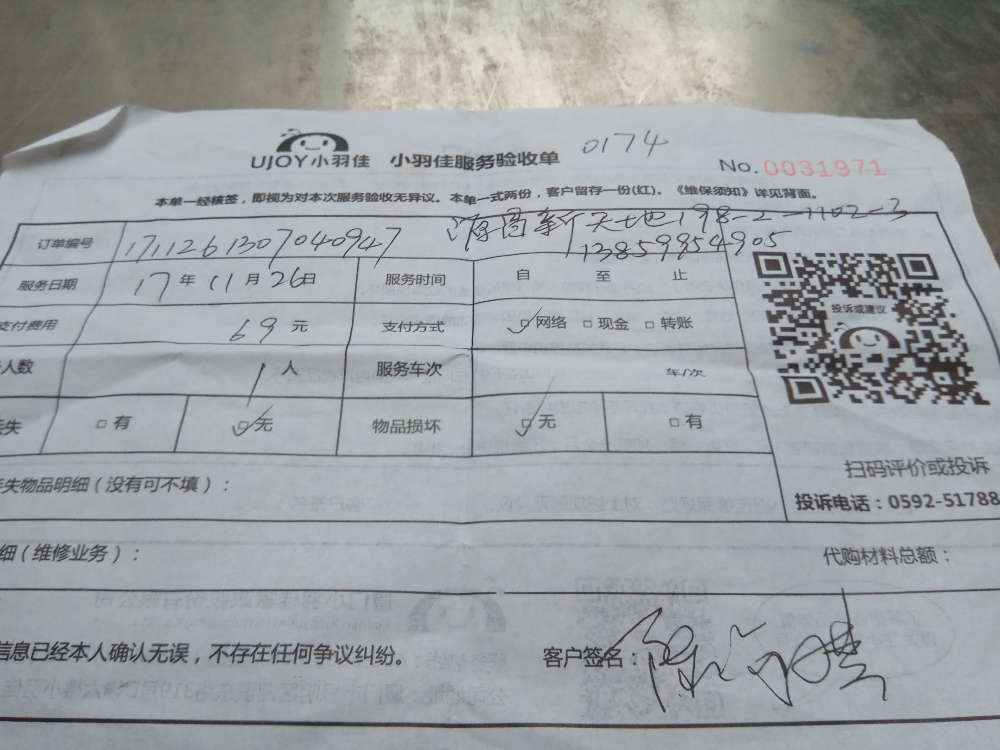 UJOY小羽佳 小羽佳服务验收单 0174
No. 0031971
本单一经核签，即视为对本次服务验收无异议。本单一式两份，客户留存一份(红)。《维保须知》详见背面。
订单编号 1711261307040947 新天地198-2-1102-3
13859954905
服务日期 17年11月26日 服务时间 自 至 止
支付费用 69元 支付方式 ✓□网络 □现金 □转账
人数 1人 服务车次 车/次
失 □有 ✓□无 物品损坏 ✓□无 □有
投诉或建议
扫码评价或投诉
投诉电话：0592-51788
失物品明细（没有可不填）：
细（维修业务）： 代购材料总额：
信息已经本人确认无误，不存在任何争议纠纷。 客户签名：